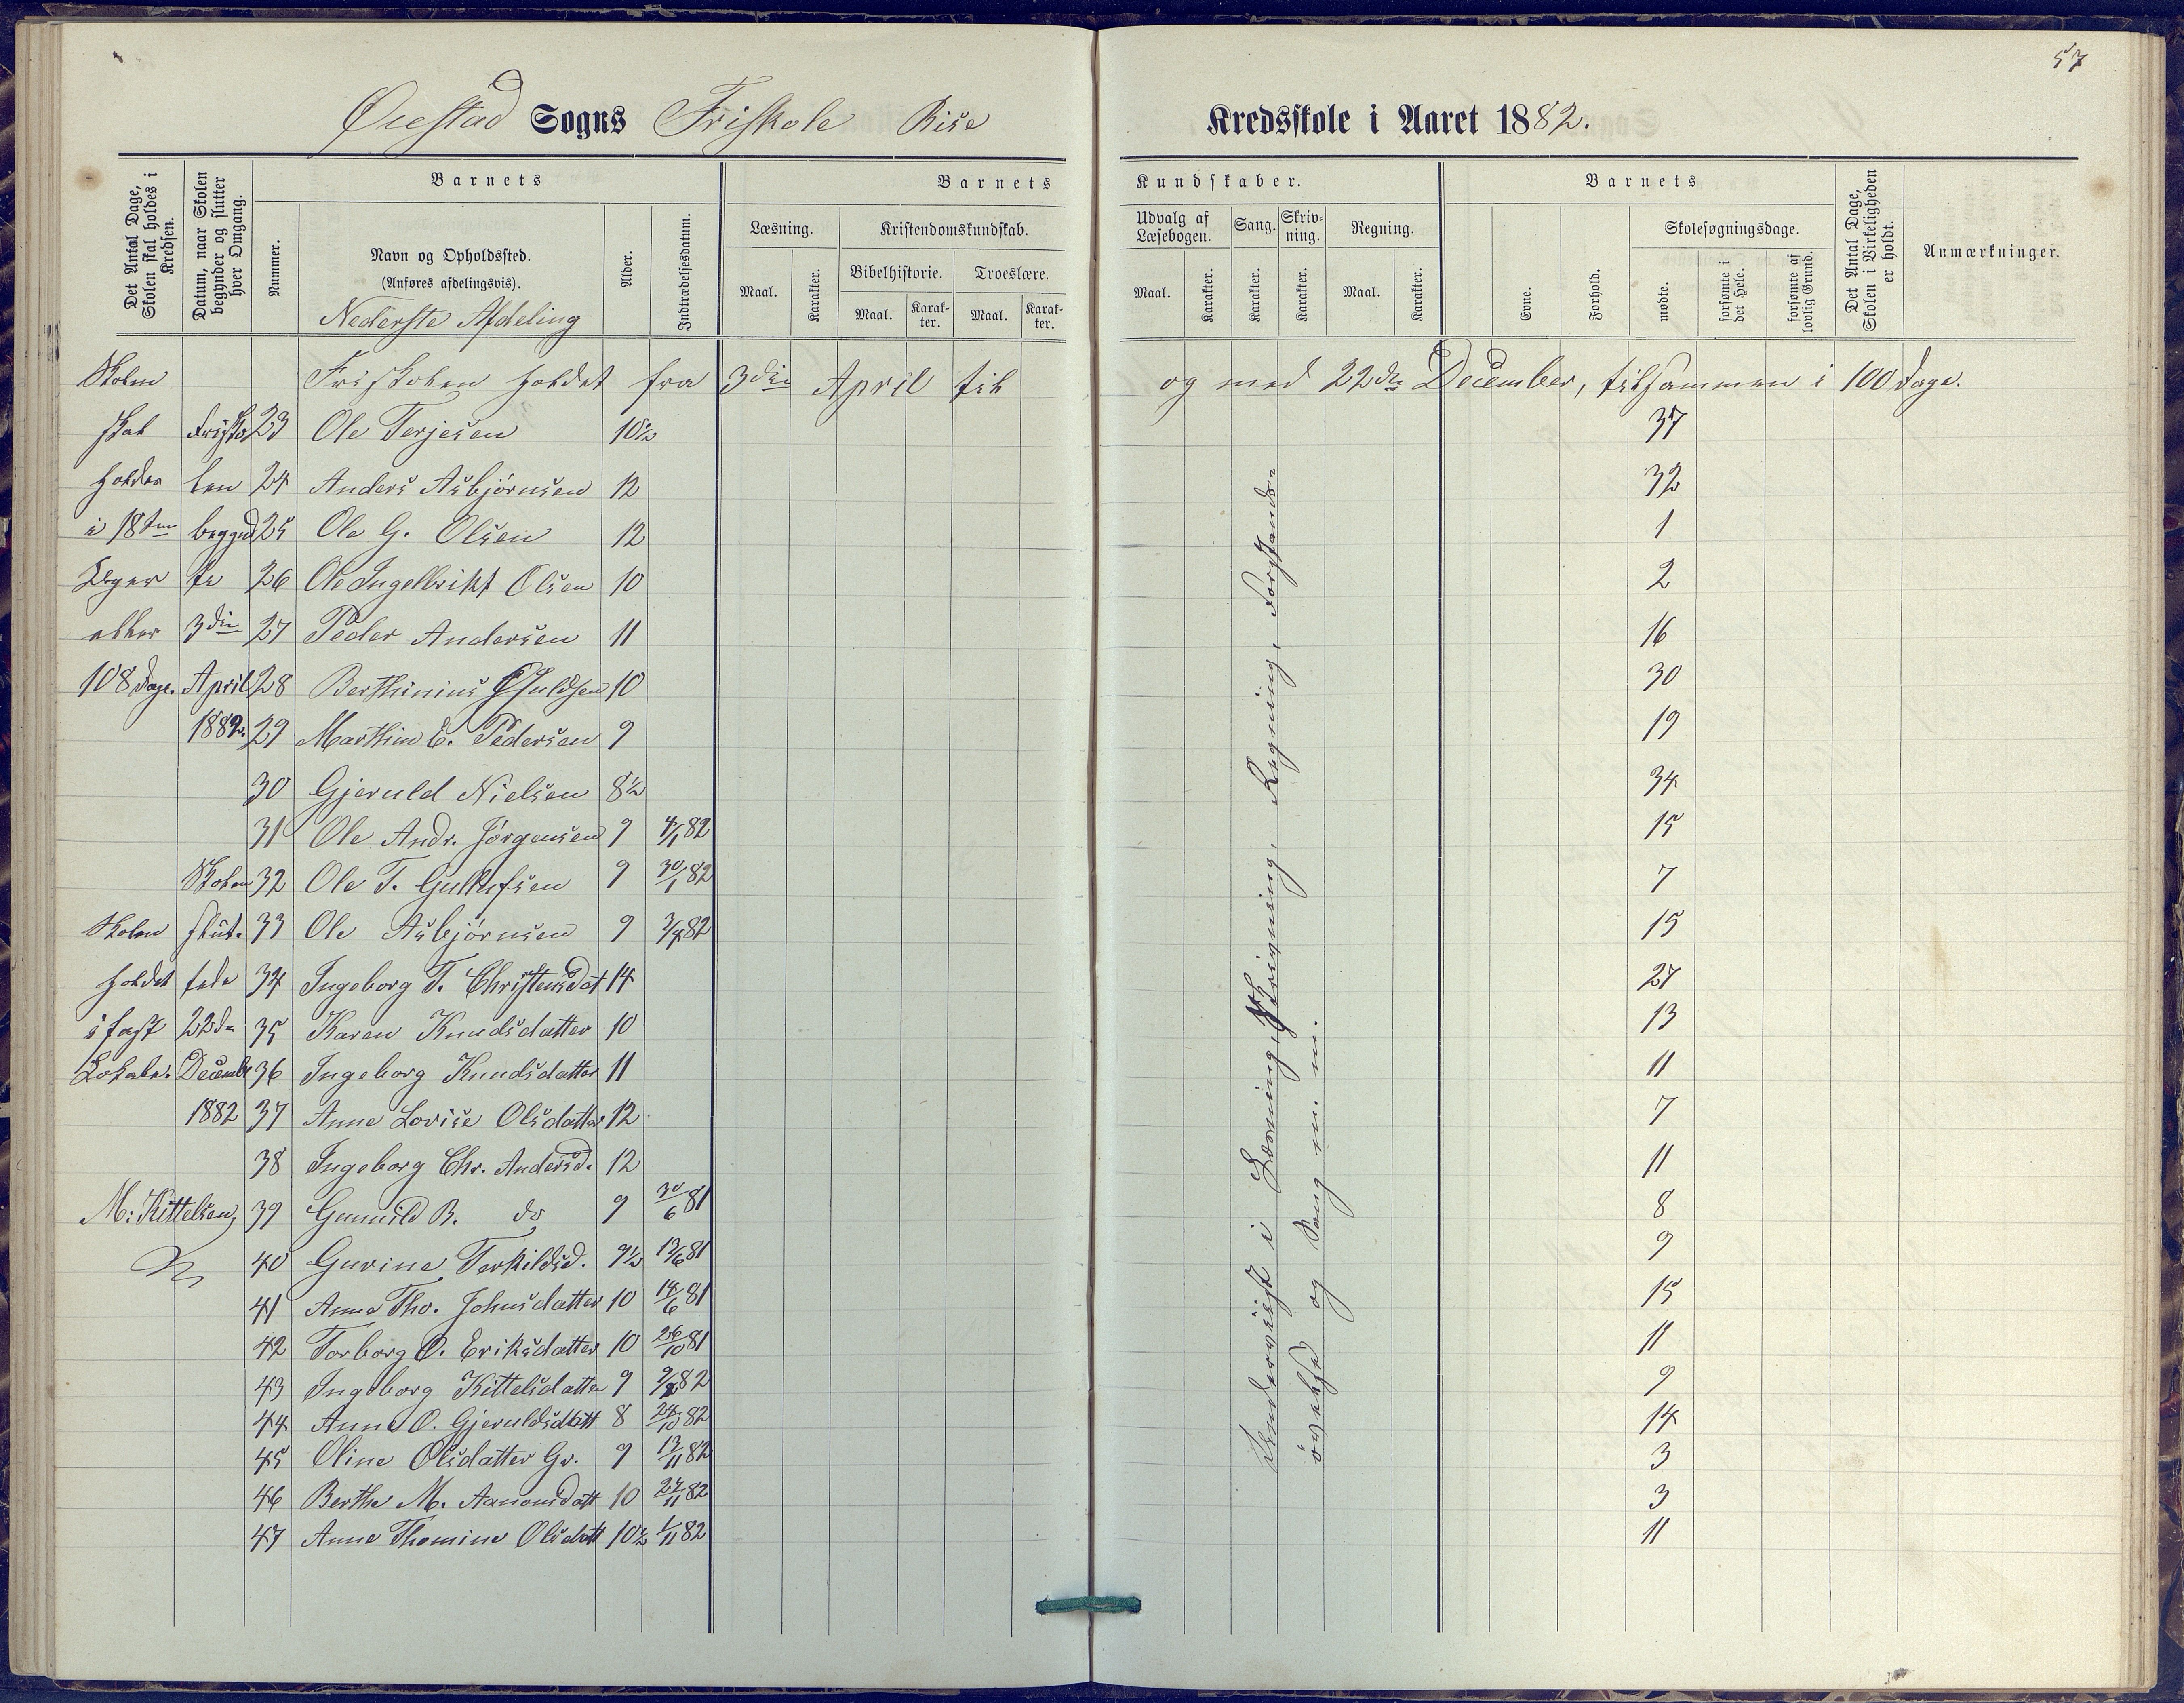 57
Øiestad Sogns Friskole Rise Kredsskole i Aaret 1882.
Det Antal Dage, Skolen skal holdes i Kredsen.
Datum, naar Skolen begynder og slutter hver Omgang.
Barnets
Nummer.
Navn og Opholdssted.
(Anføres afdelingsvis).
Nederste Afdeling
Alder.
Indtrædelsesdatum.
Barnets Kundskaber.
Læsning.
Maal. Karakter.
Kristendomskundskab.
Bibelhistorie. Troeslære.
Maal. Karakter. Maal. Karakter.
Udvalg af Læsebogen.
Maal. Karakter.
Sang. Karakter.
Skrivning. Karakter.
Regning.
Maal. Karakter.
Barnets
Evne. Forhold.
Skolesøgningsdage.
mødte. forsømte i det Hele. forsømte af lovlig Grund.
Det Antal Dage, Skolen i Virkeligheden er holdt.
Anmærkninger.
Skolen Friskolen holdet fra 3die April til og med 22de December, tilsammen i 100 Dage.
skal Frisko 23 Ole Terjesen 10½ 37
holdes len 24 Anders Asbjørnsen 12 32
i 18 begynd 25 Ole G. Olsen 12 1
Uger te 26 Ole Ingelbrikt Olsen 10 2
eller 3die 27 Peder Andersen 11 16
108 Dage. April 28 Berthinius 10 30
1882. 29 Marthin E. Pedersen 9 19
30 Gjeruld Nielsen 8½ 34
31 Ole Andr. Jørgensen 9 4/1 82 15
Skolen 32 Ole T. Gullufsen 9 30/1 82 7
Skolen slut- 33 Ole Asbjørnsen 9 3/4 82 15
holdet tede 34 Ingeborg T. Christensdat 14 27
i fast 22de 35 Karen Knudsdatter 10 13
Lokale. Decembr 36 Ingeborg Knudsdatter 11 11
1882 37 Anne Lovise Olsdatter 12 7
38 Ingeborg Chr. Andersd. 12 11
M: Kittelsen, 39 Gunnild B. do 9 30/6 81 8
40 Gurine Terkildsd. 9½ 13/6 81 9
41 Anne Tho. Johnsdatter 10 14/6 81 15
42 Torborg O. Eriksdatter 10 26/10 81 11
43 Ingeborg Kittelsdatter 9 82 9
44 Anne O. Gjeruldsdatt 8 24/10 82 14
45 Oline Olsdatter Gr. 9 13/11 82 3
46 Berthe M. Aanonsdatt 10 27/11 82 3
47 Anne Thomine Olsdatt 10½ 1/11 82 11
Underviist i Læsning, Skrivning, Regning, Forstands-
øvelse og Sang m. m.